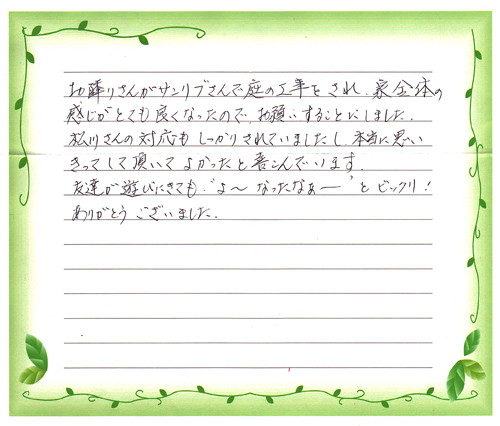 お隣りさんがサンリブさんで庭の工事をされ、家全体の
感じがとても良くなったので、お願いすることにしました.
松川さんの対応もしっかりされていましたし、本当に思い
きってして頂いてよかったと喜こんでいます.
友達が遊びにきても、“よ〜なったなぁー”とビックリ!
ありがとうございました.